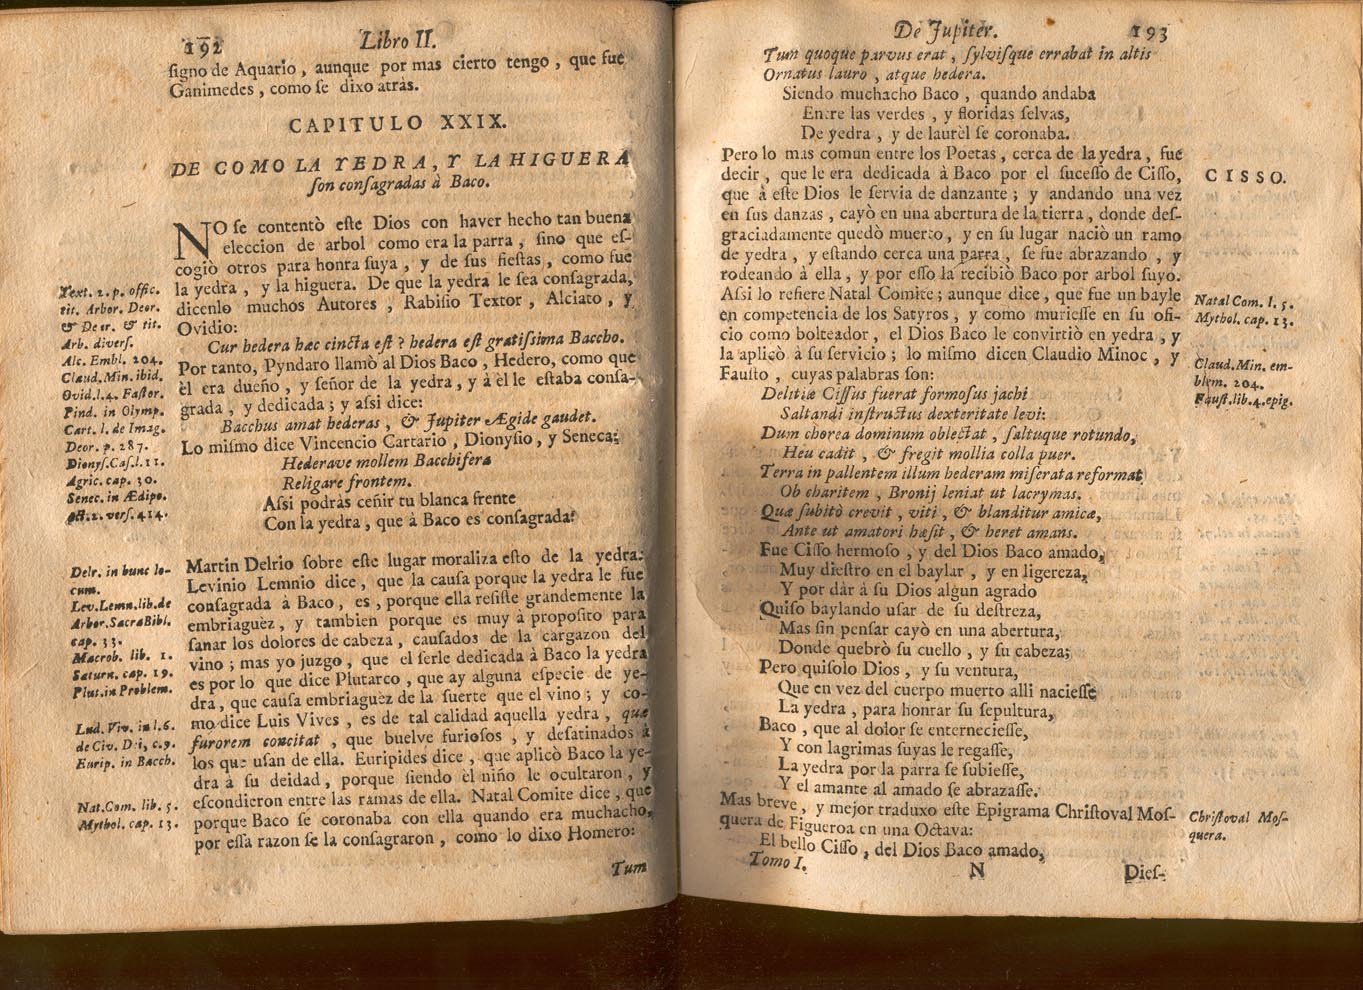 192 Libro II.
ſigno de Aquario, aunque por mas cierto tengo, que fue
Ganimedes, como ſe dixo atràs.
CAPITULO XXIX.
DE COMO LA YEDRA, Y LA HIGUERA
ſon conſagradas à Baco.
NO ſe contentò eſte Dios con haver hecho tan buena
eleccion de arbol como era la parra, ſino que eſ-
cogiò otros para honra ſuya, y de ſus fieſtas, como fue
la yedra, y la higuera. De que la yedra le ſea conſagrada,
dicenlo muchos Autores, Rabiſio Textor, Alciato, y
Ovidio:
Cur hedera hæc cincta eſt? hedera eſt gratiſsima Baccho.
Por tanto, Pyndaro llamò al Dios Baco, Hedero, como que
èl era dueño, y ſeñor de la yedra, y à èl le eſtaba conſa-
grada, y dedicada; y aſsi dice:
Bacchus amat hederas, & Jupiter Ægide gaudet.
Lo miſmo dice Vincencio Cartario, Dionyſio, y Seneca:
Hederave mollem Bacchifera
Religare frontem.
Aſsi podràs ceñir tu blanca frente
Con la yedra, que à Baco es conſagrada.
Martin Delrio ſobre eſte lugar moraliza eſto de la yedra.
Levinio Lemnio dice, que la cauſa porque la yedra le fue
conſagrada à Baco, es, porque ella reſiſte grandemente la
embriaguèz, y tambien porque es muy à propoſito para
ſanar los dolores de cabeza, cauſados de la cargazon del
vino; mas yo juzgo, que el ſerle dedicada à Baco la yedra
es por lo que dice Plutarco, que ay alguna eſpecie de ye-
dra, que cauſa embriaguèz de la ſuerte que el vino; y co-
mo dice Luis Vives, es de tal calidad aquella yedra, quæ
furorem concitat, que buelve furioſos, y deſatinados à
los que uſan de ella. Euripides dice, que aplicò Baco la ye-
dra à ſu deidad, porque ſiendo èl niño le ocultaron, y
eſcondieron entre las ramas de ella. Natal Comite dice, que
porque Baco ſe coronaba con ella quando era muchacho,
por eſſa razon ſe la conſagraron, como lo dixo Homero:
Tum
Text. 2. p. offic.
tit. Arbor. Deor.
& Deor. & tit.
Arb. diverſ.
Alc. Embl. 204.
Claud. Min. ibid.
Ovid. l. 4. Faſtor.
Pind. in Olymp.
Cart. l. de Imag.
Deor. p. 287.
Dionyſ. Caſ. l. 11.
Agric. cap. 30.
Senec. in Ædipo.
verſ. 414.
Delr. in hunc lo-
cum.
Lev. Lemn. lib. de
Arbor. Sacræ Bibl.
cap. 33.
Macrob. lib. 1.
Saturn. cap. 19.
Plut. in Problem.
Lud. Viv. in l. 6.
de Civ. Dei, c. 9.
Eurip. in Bacch.
Nat. Com. lib. 5.
Mythol. cap. 13.
De Jupiter. 193
Tum quoque parvus erat, ſylviſque errabat in altis
Ornatus lauro, atque hedera.
Siendo muchacho Baco, quando andaba
Entre las verdes, y floridas ſelvas,
De yedra, y de laurèl ſe coronaba.
Pero lo mas comun entre los Poetas, cerca de la yedra, fue
decir, que le era dedicada à Baco por el ſuceſſo de Ciſſo,
que à eſte Dios le ſervia de danzante; y andando una vez
en ſus danzas, cayò en una abertura de la tierra, donde deſ-
graciadamente quedò muerto, y en ſu lugar naciò un ramo
de yedra, y eſtando cerca una parra, ſe fue abrazando, y
rodeando à ella, y por eſſo la recibiò Baco por arbol ſuyo.
Aſsi lo refiere Natal Comite; aunque dice, que fue un bayle
en competencia de los Satyros, y como murieſſe en ſu ofi-
cio como bolteador, el Dios Baco le convirtiò en yedra, y
la aplicò à ſu ſervicio; lo miſmo dicen Claudio Minoc, y
Fauſto, cuyas palabras ſon:
Delitiæ Ciſſus fuerat formoſus jachi
Saltandi inſtructus dexteritate levi:
Dum chorea dominum oblectat, ſaltuque rotundo,
Heu cadit, & fregit mollia colla puer.
Terra in pallentem illum hederam miſerata reformat
Ob charitem, Bronij leniat ut lacrymas.
Quæ ſubitò crevit, viti, & blanditur amicæ,
Ante ut amatori hæſit, & heret amans.
Fue Ciſſo hermoſo, y del Dios Baco amado,
Muy dieſtro en el baylar, y en ligereza,
Y por dàr à ſu Dios algun agrado
Quiſo baylando uſar de ſu deſtreza,
Mas ſin penſar cayò en una abertura,
Donde quebrò ſu cuello, y ſu cabeza;
Pero quiſolo Dios, y ſu ventura,
Que en vez del cuerpo muerto alli nacieſſe
La yedra, para honrar ſu ſepultura,
Baco, que al dolor ſe enternecieſſe,
Y con lagrimas ſuyas le regaſſe,
La yedra por la parra ſe ſubieſſe,
Y el amante al amado ſe abrazaſſe.
Mas breve, y mejor traduxo eſte Epigrama Chriſtoval Moſ-
quera de Figueroa en una Octava:
El bello Ciſſo, del Dios Baco amado,
Tomo I. N Dieſ-
CISSO.
Natal Com. l. 5.
Mythol. cap. 13.
Claud. Min. em-
blem. 204.
Fauſt. lib. 4. epig.
Chriſtoval Moſ-
quera.